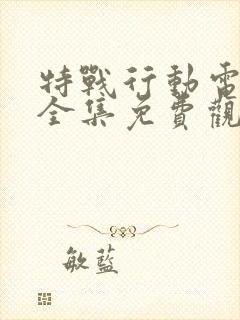 特戰行動電
全集免費觀
敏藍